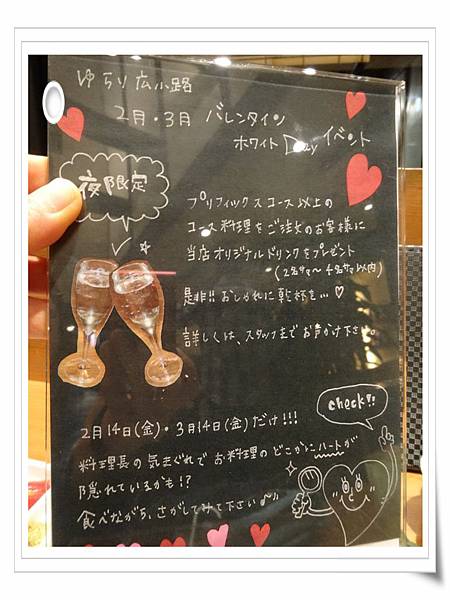 ゆらり広小路
2月・3月 バレンタイン
ホワイト Day イベント
夜限定
プリフィックスコース以上の
コース料理をご注文のお客様に
当店オリジナルドリンクをプレゼント
(2名サマ〜4名サマ以内)
是非!!おしゃれに乾杯を…♡
詳しくは、スタッフまでお声かけ下さい。
check!!
2月14日(金)・3月14日(金)だけ!!!
料理長の気まぐれでお料理のどこかにハートが
隠れているかも!?
食べながら、さがしてみて下さい♪